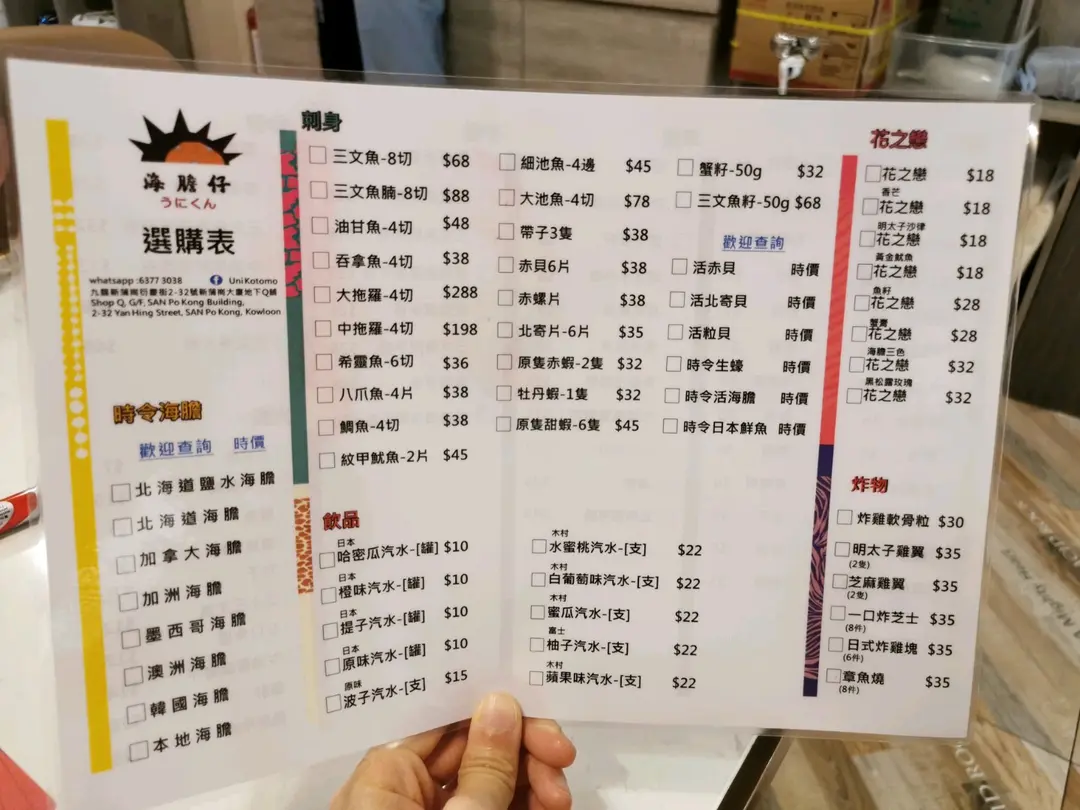 海膽仔
うにくん
選購表
whatsapp :6377 3038 UniKotomo
九龍新蒲崗衍慶街2-32號新蒲崗大廈地下Q舖
Shop Q, G/F, SAN Po Kong Building,
2-32 Yan Hing Street, SAN Po Kong, Kowloon
時令海膽
歡迎查詢 時價
北海道鹽水海膽
北海道海膽
加拿大海膽
加洲海膽
墨西哥海膽
澳洲海膽
韓國海膽
本地海膽
刺身
三文魚-8切 $68
三文魚腩-8切 $88
油甘魚-4切 $48
吞拿魚-4切 $38
大拖羅-4切 $288
中拖羅-4切 $198
希靈魚-6切 $36
八爪魚-4片 $38
鯛魚-4切 $38
紋甲魷魚-2片 $45
細池魚-4邊 $45
大池魚-4切 $78
帶子3隻 $38
赤貝6片 $38
赤螺片 $38
北寄片-6片 $35
原隻赤蝦-2隻 $32
牡丹蝦-1隻 $32
原隻甜蝦-6隻 $45
蟹籽-50g $32
三文魚籽-50g $68
歡迎查詢
活赤貝 時價
活北寄貝 時價
活粒貝 時價
時令生蠔 時價
時令活海膽 時價
時令日本鮮魚 時價
飲品
日本
哈密瓜汽水-[罐] $10
日本
橙味汽水-[罐] $10
日本
提子汽水-[罐] $10
日本
原味汽水-[罐] $10
原味
波子汽水-[支] $15
木村
水蜜桃汽水-[支] $22
木村
白葡萄味汽水-[支] $22
木村
蜜瓜汽水-[支] $22
富士
柚子汽水-[支] $22
木村
蘋果味汽水-[支] $22
花之戀
花之戀 $18
香芒
花之戀 $18
明太子沙律
花之戀 $18
黃金魷魚
花之戀 $18
魚籽
花之戀 $28
蟹膏
花之戀 $28
海膽三色
花之戀 $32
黑松露玫瑰
花之戀 $32
炸物
炸雞軟骨粒 $30
明太子雞翼 $35
(2隻)
芝麻雞翼 $35
(2隻)
一口炸芝士 $35
(8件)
日式炸雞塊 $35
(6件)
章魚燒 $35
(8件)